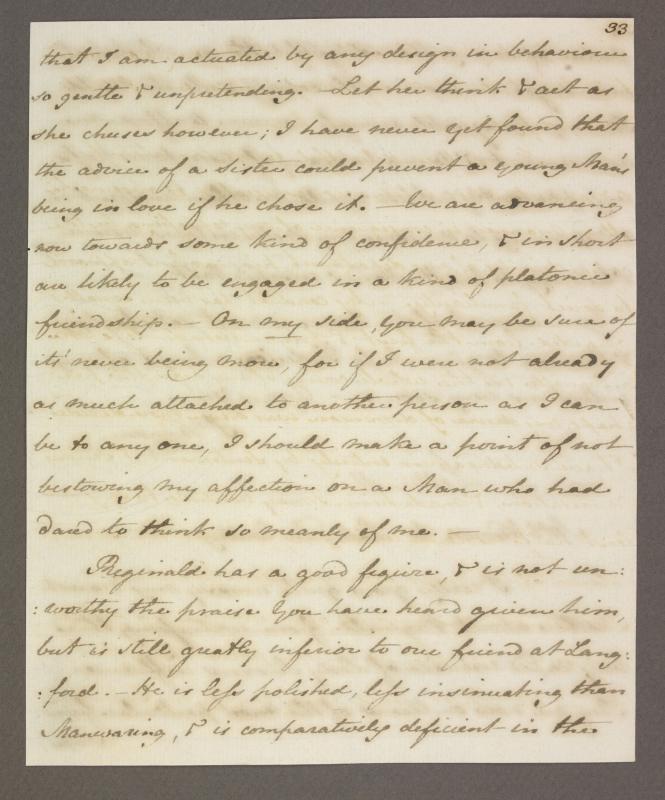 33
that I am actuated by any design in behaviour
so gentle & unpretending. – Let her think & act as
she chuses however; I have never yet found that
the advice of a Sister could prevent a young Man's
being in love if he chose it. – We are advancing
now towards some kind of confidence, & in short
are likely to be engaged in a kind of platonic
friendship. – On my side, you may be sure of
its' never being more, for if I were not already
as much attached to another person as I can
be to any one, I should make a point of not
bestowing my affection on a Man who had
dared to think so meanly of me. –
Reginald has a good figure, & is not un:
:worthy the praise you have heard given him,
but is still greatly inferior to our friend at Lang:
:ford. – He is less polished, less insinuating than
Manwaring, & is comparatively deficient in the